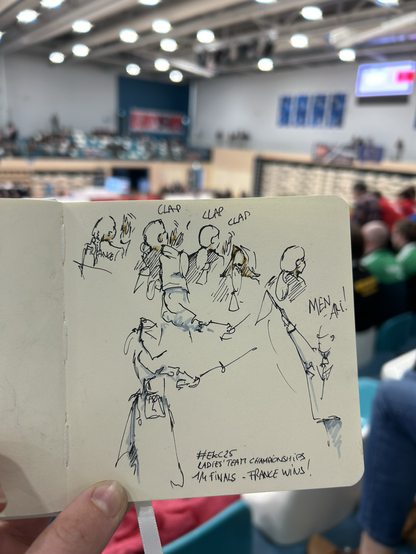 CLAP
CLAP
CLAP
FRANCE
MEN
ARI!
#EKC25
LADIES' TEAM CHAMPIONSHIPS
1/4 FINALS - FRANCE WINS!